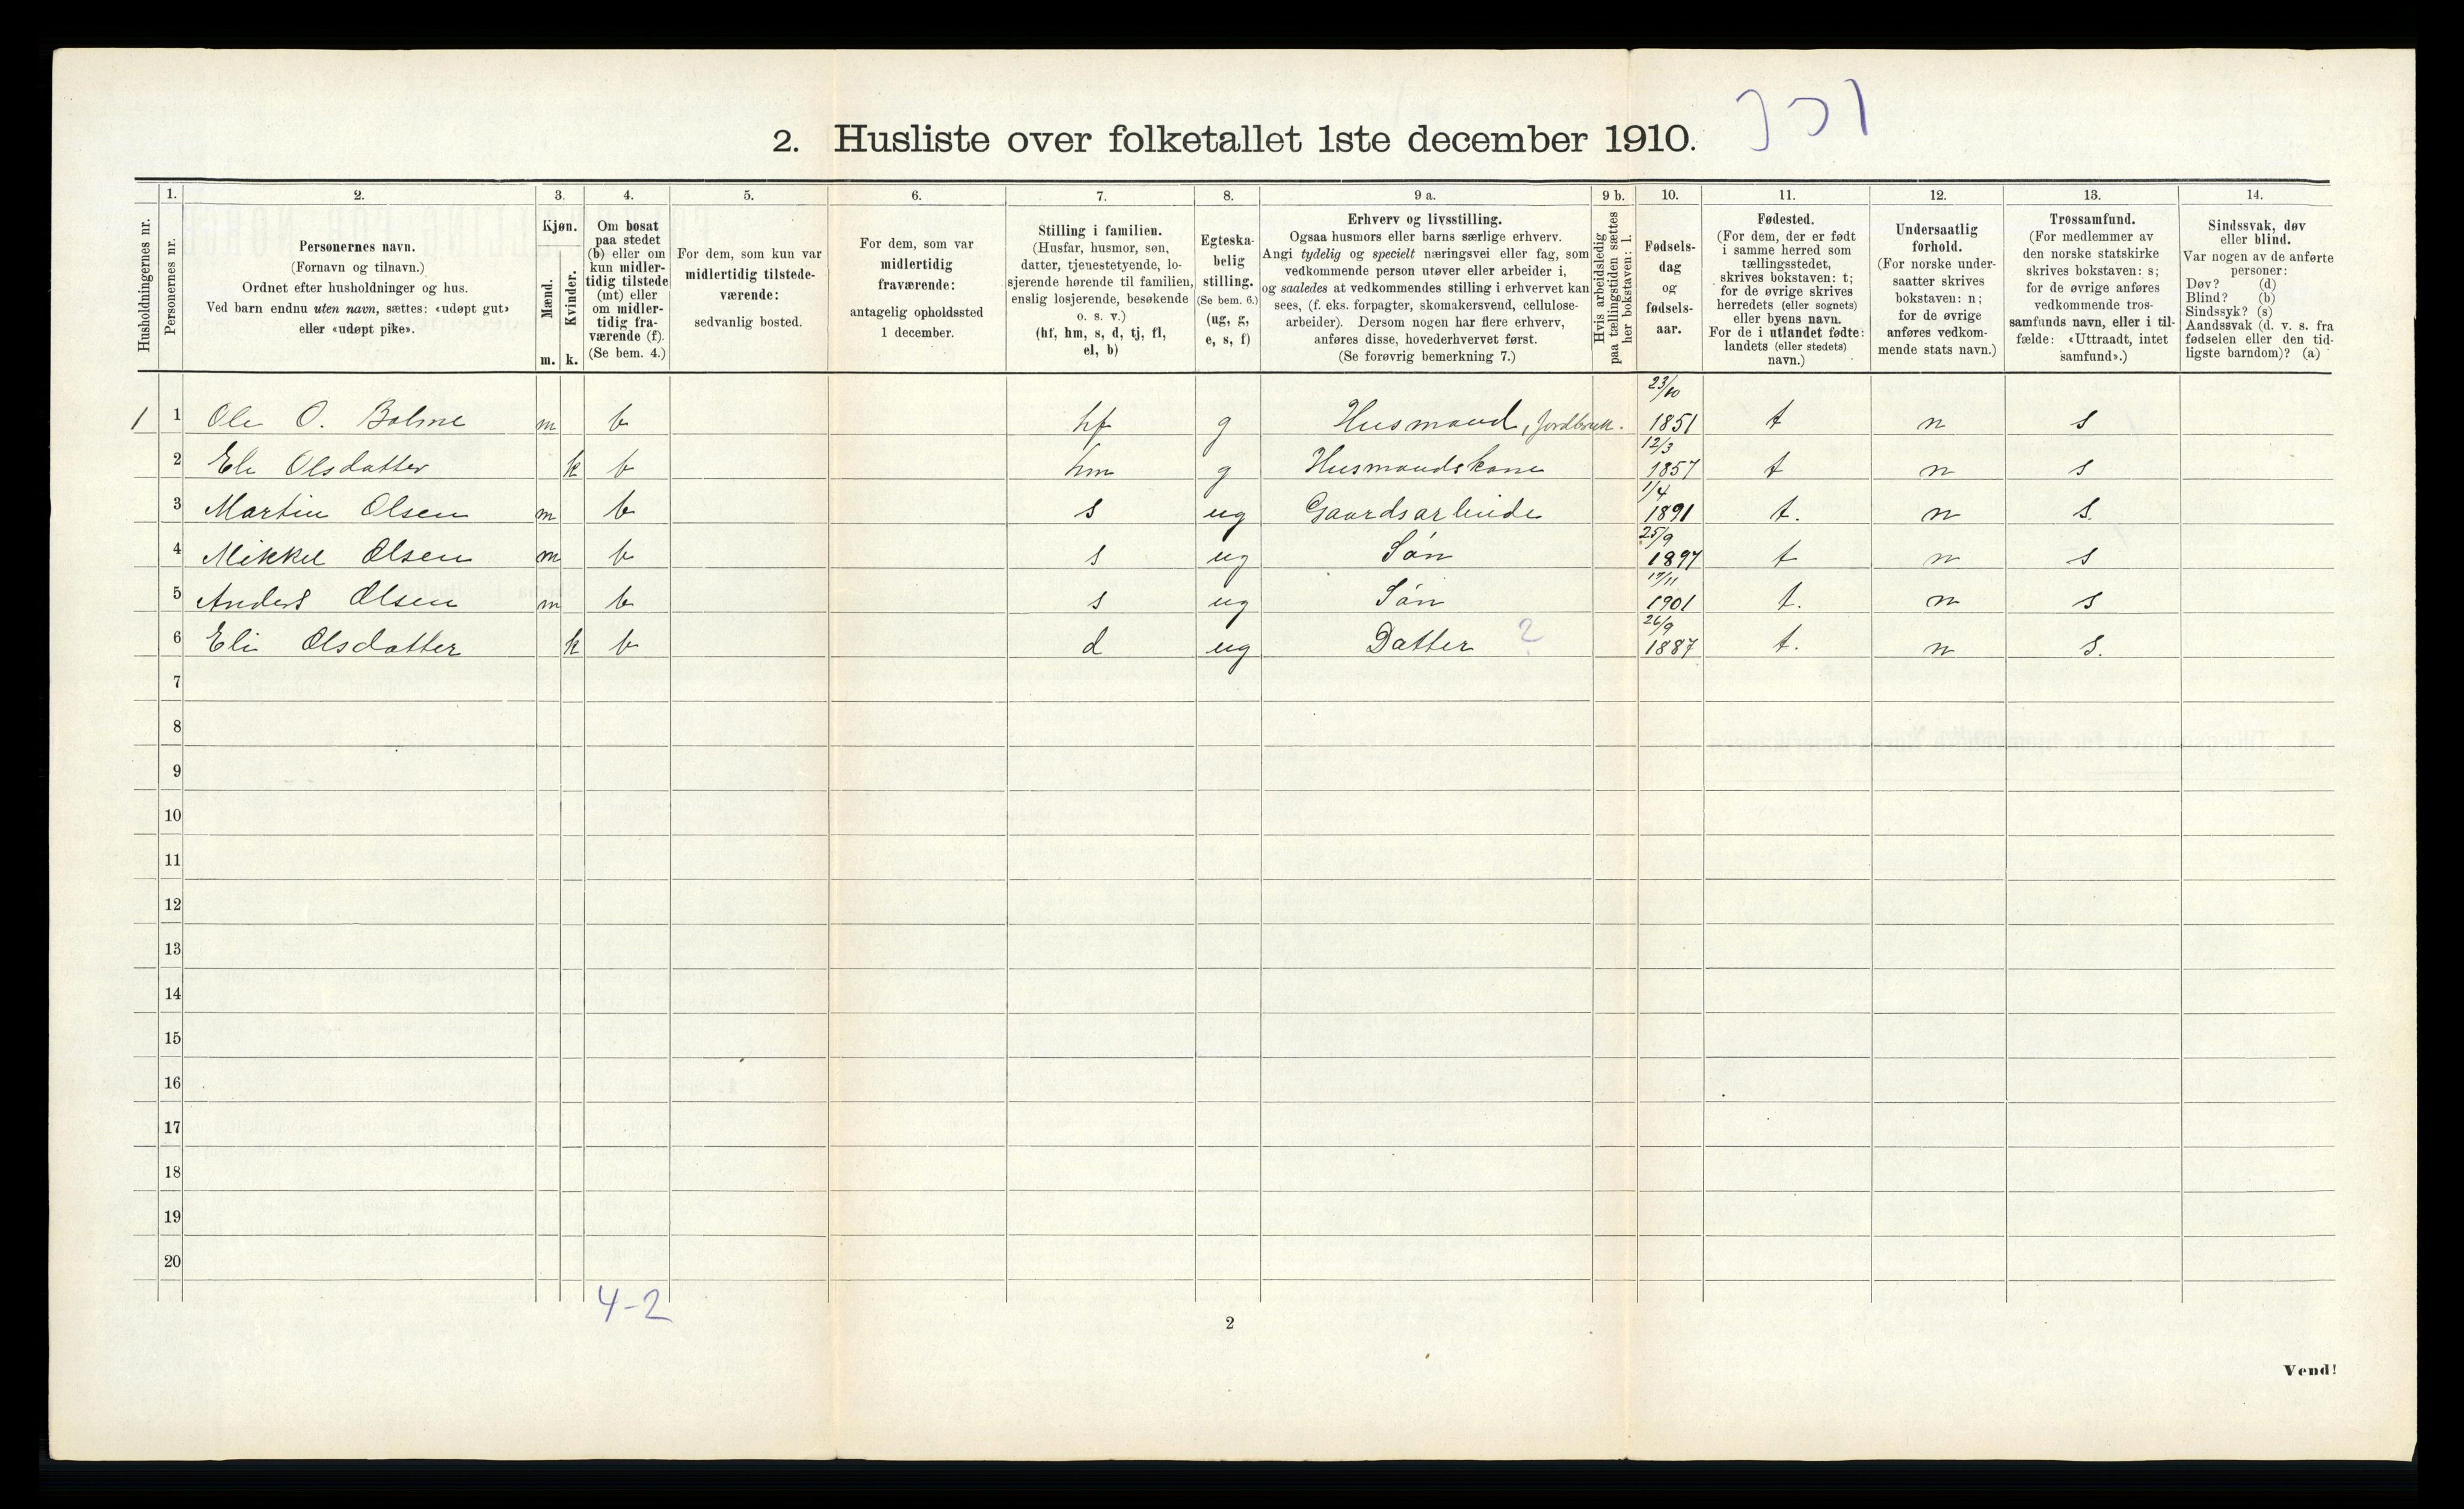 2. Husliste over folketallet 1ste december 1910.
Husholdningernes nr.
1.
Personernes nr.
2.
Personernes navn.
(Fornavn og tilnavn.)
Ordnet efter husholdninger og hus.
Ved barn endnu uten navn, sættes: «udøpt gut»
eller «udøpt pike».
3.
Kjøn.
Mænd.
Kvinder.
m. k.
4.
Om bosat
paa stedet
(b) eller om
kun midler-
tidig tilstede
(mt) eller
om midler-
tidig fra-
værende (f).
(Se bem. 4.)
5.
For dem, som kun var
midlertidig tilstede-
værende:
sedvanlig bosted.
6.
For dem, som var
midlertidig
fraværende:
antagelig opholdssted
1 december.
7.
Stilling i familien.
(Husfar, husmor, søn,
datter, tjenestetyende, lo-
sjerende hørende til familien,
enslig losjerende, besøkende
o. s. v.)
(hf, hm, s, d, tj, fl,
el, b)
8.
Egteska-
belig
stilling.
(Se bem. 6.)
(ug, g,
e, s, f)
9 a.
Erhverv og livsstilling.
Ogsaa husmors eller barns særlige erhverv.
Angi tydelig og specielt næringsvei eller fag, som
vedkommende person utøver eller arbeider i,
og saaledes at vedkommendes stilling i erhvervet kan
sees, (f. eks. forpagter, skomakersvend, cellulose-
arbeider). Dersom nogen har flere erhverv,
anføres disse, hovederhvervet først.
(Se forøvrig bemerkning 7.)
9 b.
Hvis arbeidsledig
paa tællingstiden sættes
her bokstaven: l.
10.
Fødsels-
dag
og
fødsels-
aar.
11.
Fødested.
(For dem, der er født
i samme herred som
tællingsstedet,
skrives bokstaven: t;
for de øvrige skrives
herredets (eller sognets)
eller byens navn.
For de i utlandet fødte:
landets (eller stedets)
navn.)
12.
Undersaatlig
forhold.
(For norske under-
saatter skrives
bokstaven: n;
for de øvrige
anføres vedkom-
mende stats navn.)
13.
Trossamfund.
(For medlemmer av
den norske statskirke
skrives bokstaven: s;
for de øvrige anføres
vedkommende tros-
samfunds navn, eller i til-
fælde: «Uttraadt, intet
samfund».)
14.
Sindssvak, døv
eller blind.
Var nogen av de anførte
personer:
Døv? (d)
Blind? (b)
Sindssyk? (s)
Aandssvak (d. v. s. fra
fødselen eller den tid-
ligste barndom)? (a)
1 1 Ole O. Bolme m b hf g Husmand, Jordbruk. 23/10 1851 t n s
2 Eli Olsdatter k b hm g Husmandskone 12/3 1857 t n s
3 Martin Olsen m b s ug Gaardsarbeide 1/4 1891 t. n s.
4 Mikkel Olsen m b s ug Søn 25/9 1897 t n s
5 Anders Olsen m b s ug Søn 17/11 1901 t. n s
6 Eli Olsdatter k b d ug Datter ? 26/9 1887 t. n s.
7
8
9
10
11
12
13
14
15
16
17
18
19
20
4-2
2
Vend!